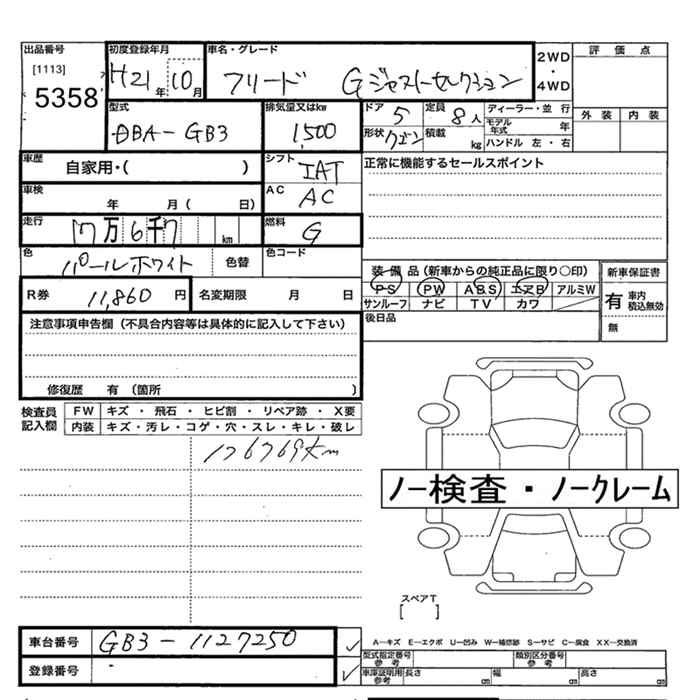 出品番号 初度登録年月 車名・グレード 2WD・4WD 評価点
[1113] 5358 H21年10月 フリード Gジャストセレクション
型式 排気量又はkw ドア 5 定員 8人 ディーラー・並行 外装 内装
DBA-GB3 1,500 形状 ワゴン 積載 kg モデル年式 年
ハンドル 左・右
車歴 自家用・( ) シフト IAT 正常に機能するセールスポイント
車検 年 月( 日) AC AC
走行 万6千7 km 燃料 G
色 パールホワイト 色替 色コード
装備品(新車からの純正品に限り○印) 新車保証書
R券 11,860円 名変期限 月 日 PS PW ABS エアB アルミW 有 車内 積込無効
サンルーフ ナビ TV カワ
注意事項申告欄(不具合内容等は具体的に記入して下さい) 後日品 無
修復歴 有(箇所 )
検査員記入欄 FW キズ・飛石・ヒビ割・リペア跡・X要
内装 キズ・汚レ・コゲ・穴・スレ・キレ・破レ
176769km
ノー検査・ノークレーム
スペアT
[ ]
車台番号 GB3-1127250 A-キズ E-エクボ U-凹み W-補修跡 S-サビ C-腐食 XX-交換済
型式指定番号 参考 類別区分番号 参考
登録番号 車庫証明用 参考 長さ cm 幅 cm 高さ cm